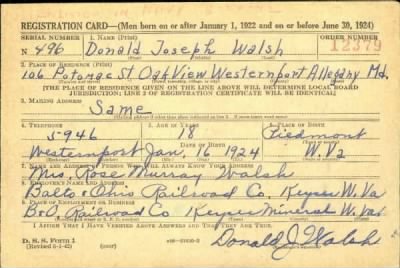 REGISTRATION CARD—(Men born on or after January 1, 1922 and on or before June 30, 1924)
SERIAL NUMBER 1. NAME (Print) ORDER NUMBER
N 496 Donald Joseph Walsh 12379
(First) (Middle) (Last)
2. PLACE OF RESIDENCE (Print)
106 Potomac St Oak View Westernport Allegany Md.
[THE PLACE OF RESIDENCE GIVEN ON THE LINE ABOVE WILL DETERMINE LOCAL BOARD
JURISDICTION; LINE 2 OF REGISTRATION CERTIFICATE WILL BE IDENTICAL]
3. MAILING ADDRESS
Same
4. TELEPHONE 5. AGE IN YEARS 6. PLACE OF BIRTH
5946 18 Piedmont
DATE OF BIRTH
Westernport Jan. 16 1924 W. Va
7. NAME AND ADDRESS OF PERSON WHO WILL ALWAYS KNOW YOUR ADDRESS
Mrs. Rose Murray Walsh
8. EMPLOYER'S NAME AND ADDRESS
Balto & Ohio Railroad Co. Keyser W. Va
9. PLACE OF EMPLOYMENT OR BUSINESS
B&O. Railroad Co Keyser Mineral W. Va.
I AFFIRM THAT I HAVE VERIFIED ABOVE ANSWERS AND THAT THEY ARE TRUE.
D. S. S. Form 1
(Revised 6-1-42)
Donald J. Walsh